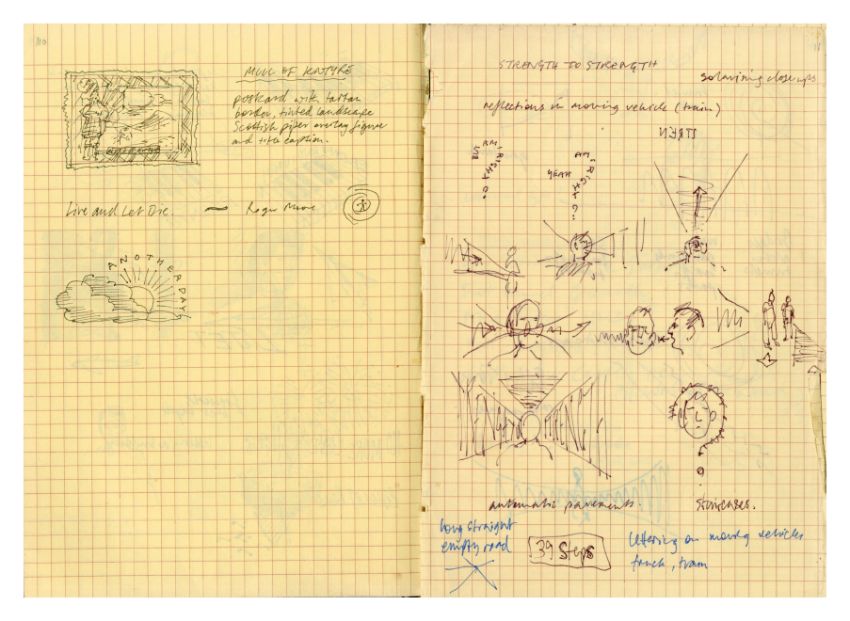 MULL OF KINTYRE
postcard with tartan
border, tinted landscape
Scottish piper overlay figure
and title caption.
Live and Let Die. ~ Roger Moore
ANOTHER DAY
STRENGTH TO STRENGTH
solarising close ups
reflections in moving vehicle (train)
AM I RIGHT
YEAH
AM I RIGHT
automatic pavements.
staircases.
long straight
empty road
39 Steps
lettering on moving vehicles
truck, tram